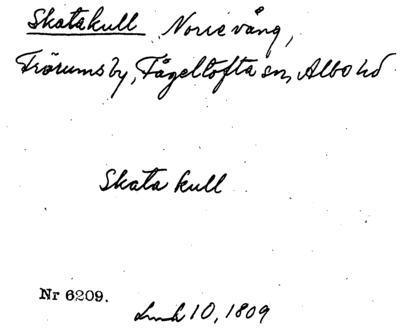 Skatakull Norre vång,
Frörums by, Fågeltofta sn, Albo hd
Skata kull
Nr 6209.
10, 1809